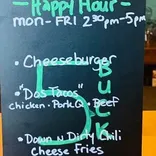 - Happy Hour -
mon- FRI 2:30pm-5pm
• Cheeseburger
• "Dos Tacos"
chicken • Pork • Beef
• Down N Dirty Chili
Cheese Fries
5
BUCK